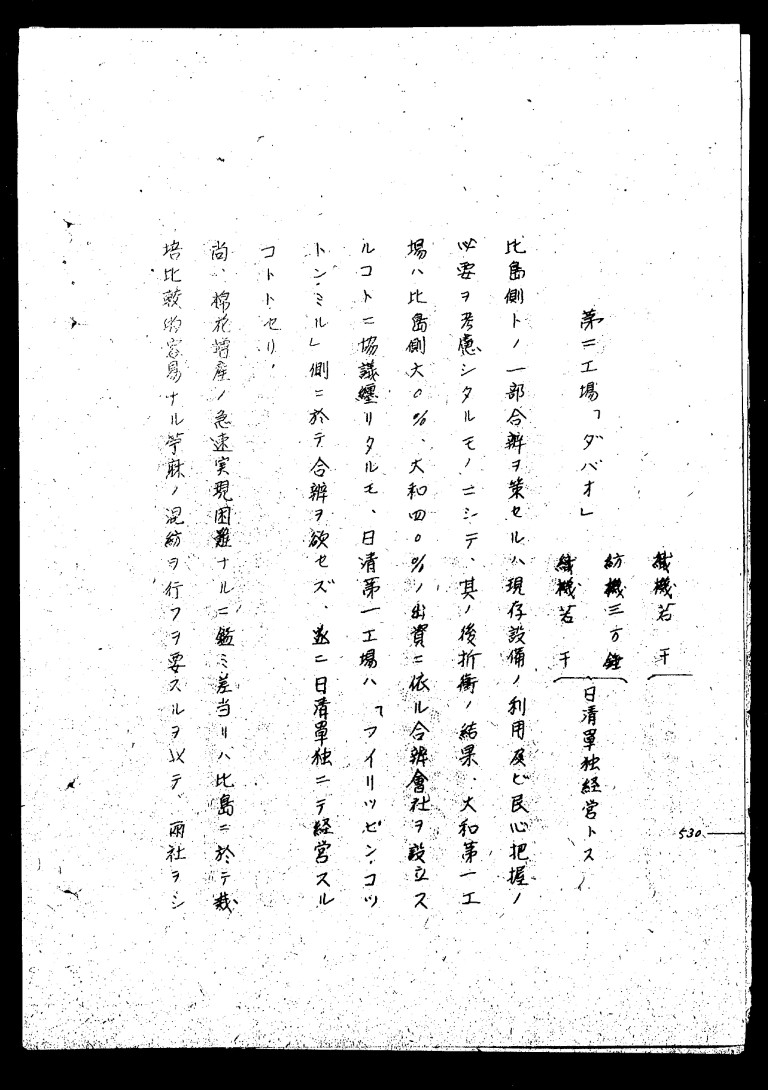 織機若干
紡機三万錘
第二工場「ダバオ」
織機若干
日清單独経営トス
比島側トノ一部合辦ヲ策セルハ現存設備ノ利用及ビ民心把握ノ
必要ヲ考慮シタルモノニシテ、其ノ後折衝ノ結果、大和第一工
場ハ比島側六〇%、大和四〇%ノ出資ニ依ル合辦會社ヲ設立ス
ルコトニ協議纒リタルモ、日清第一工場ハ「フイリツピン、コツ
トン、ミル」側ニ於テ合辦ヲ欲セズ、遂ニ日清單独ニテ経営スル
コトトセリ、
尚、棉花増産ノ急速実現困難ナルニ鑑ミ差当リハ比島ニ於テ栽
培比較的容易ナル苧麻ノ混紡ヲ行フヲ要スルヲ以テ、両社ヲシ
530